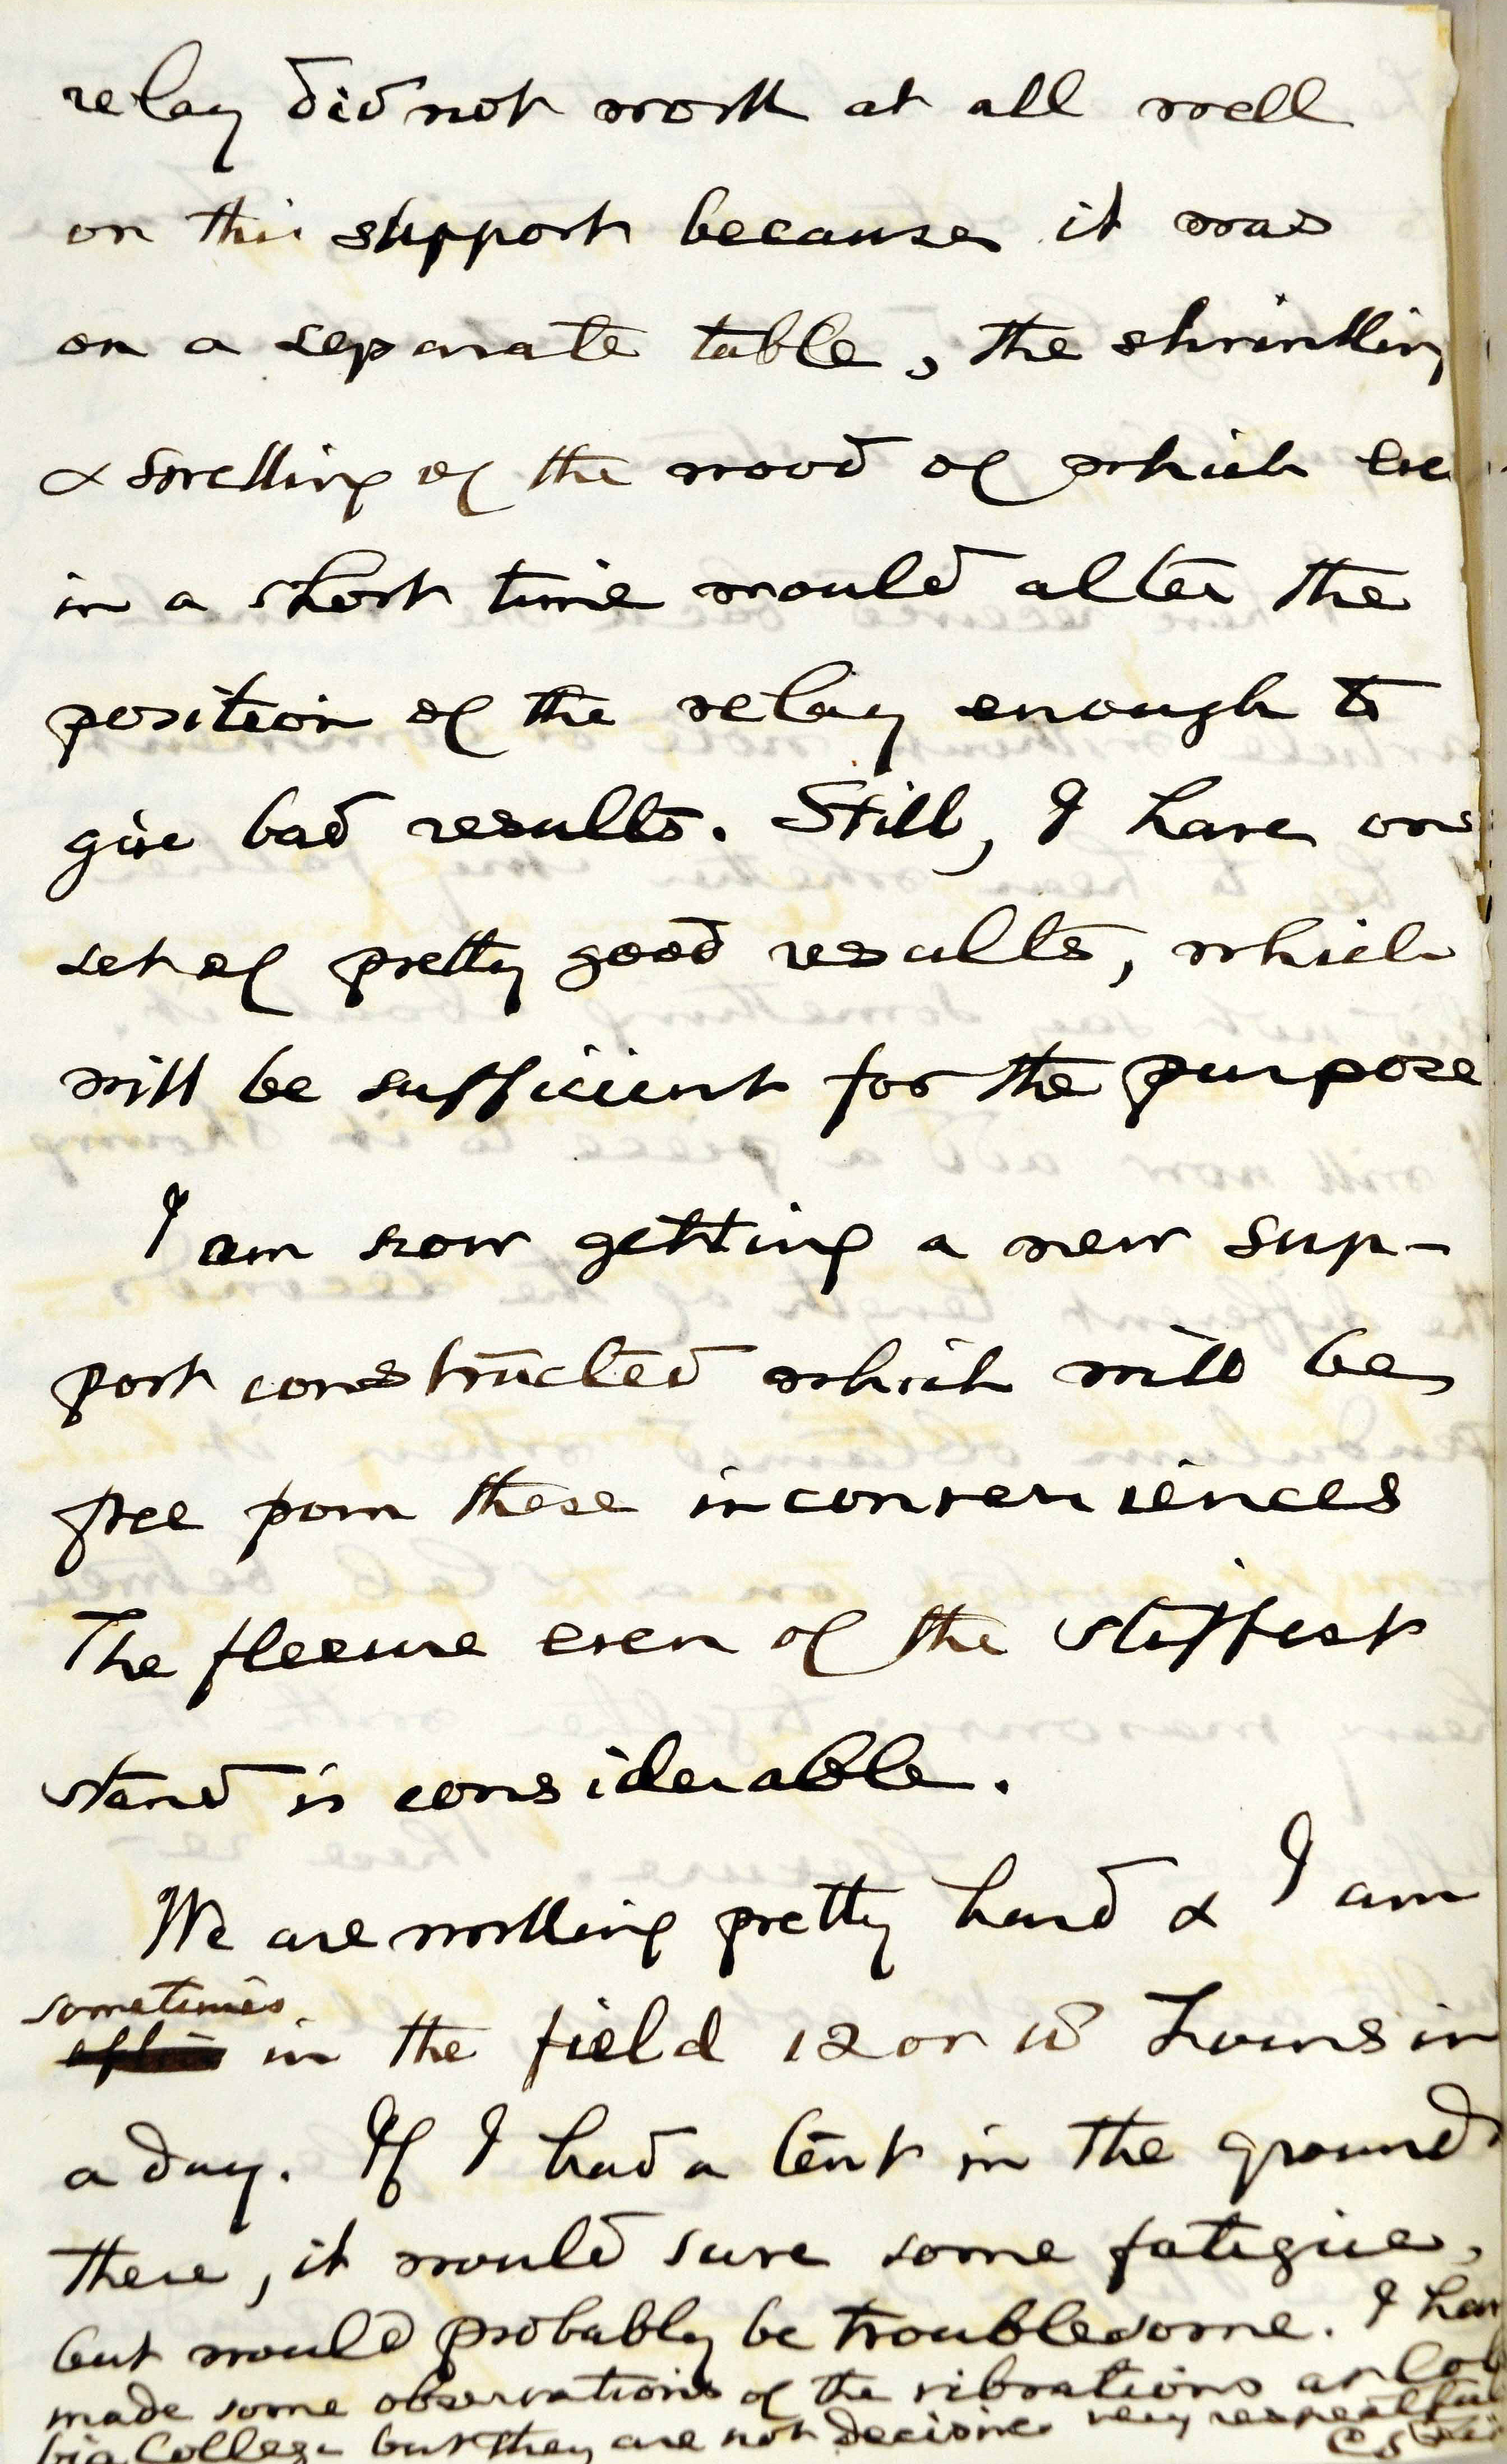 relay did not work at all well
on this support because it was
on a separate table, the shrinking
& swelling of the wood of which
in a short time would alter the
position of the relay enough to
give bad results. Still, I have one
set of pretty good results, which
will be sufficient for the purpose
I am now getting a new sup-
port constructed which will be
free from these inconveniences
The flexure even of the stiffest
stand is considerable.
We are working pretty hard & I am
sometimes
in the field 12 or 18 hours in
a day. If I had a tent in the ground
there, it would save some fatigue,
but would probably be troublesome. I have
made some observations of the vibrations at Colum
bia College but they are not decisive very respectful